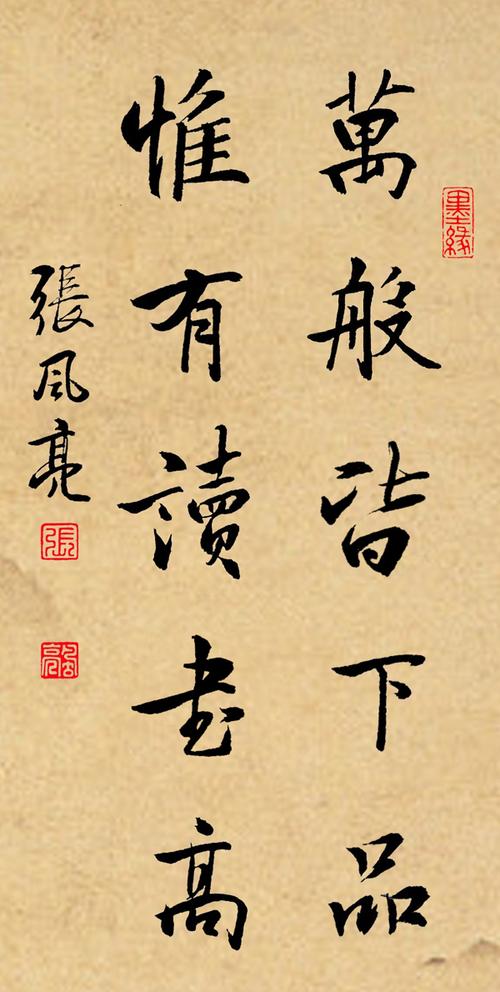 萬般皆下品
惟有讀书高
張风亮
墨緣
張